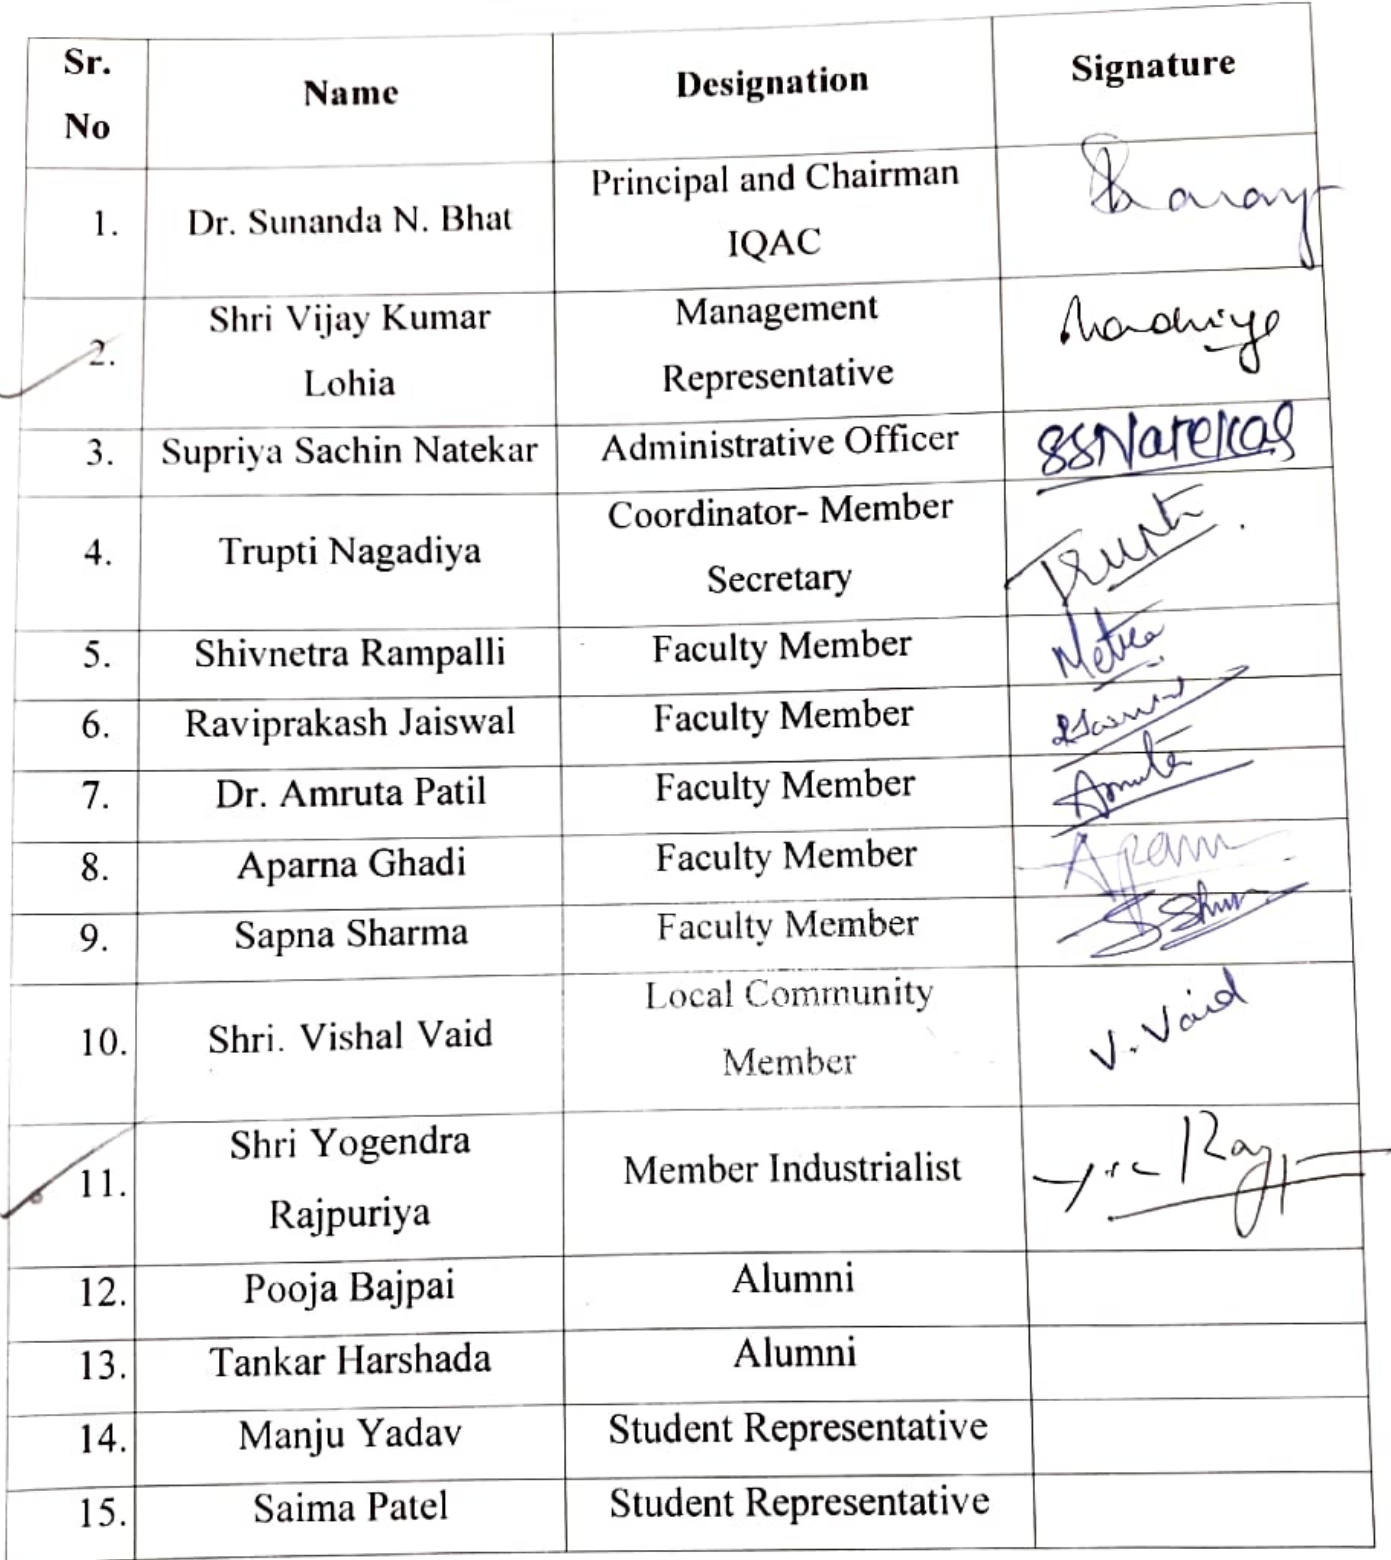 Sr.
No
Name
Designation
Signature
1.
Dr. Sunanda N. Bhat
Principal and Chairman
IQAC
2.
Shri Vijay Kumar
Lohia
Management
Representative
3.
Supriya Sachin Natekar
Administrative Officer
SSNatekar
4.
Trupti Nagadiya
Coordinator- Member
Secretary
Trupti
5.
Shivnetra Rampalli
Faculty Member
6.
Raviprakash Jaiswal
Faculty Member
7.
Dr. Amruta Patil
Faculty Member
Amruta
8.
Aparna Ghadi
Faculty Member
9.
Sapna Sharma
Faculty Member
10.
Shri. Vishal Vaid
Local Community
Member
V. Vaid
11.
Shri Yogendra
Rajpuriya
Member Industrialist
12.
Pooja Bajpai
Alumni
13.
Tankar Harshada
Alumni
14.
Manju Yadav
Student Representative
15.
Saima Patel
Student Representative